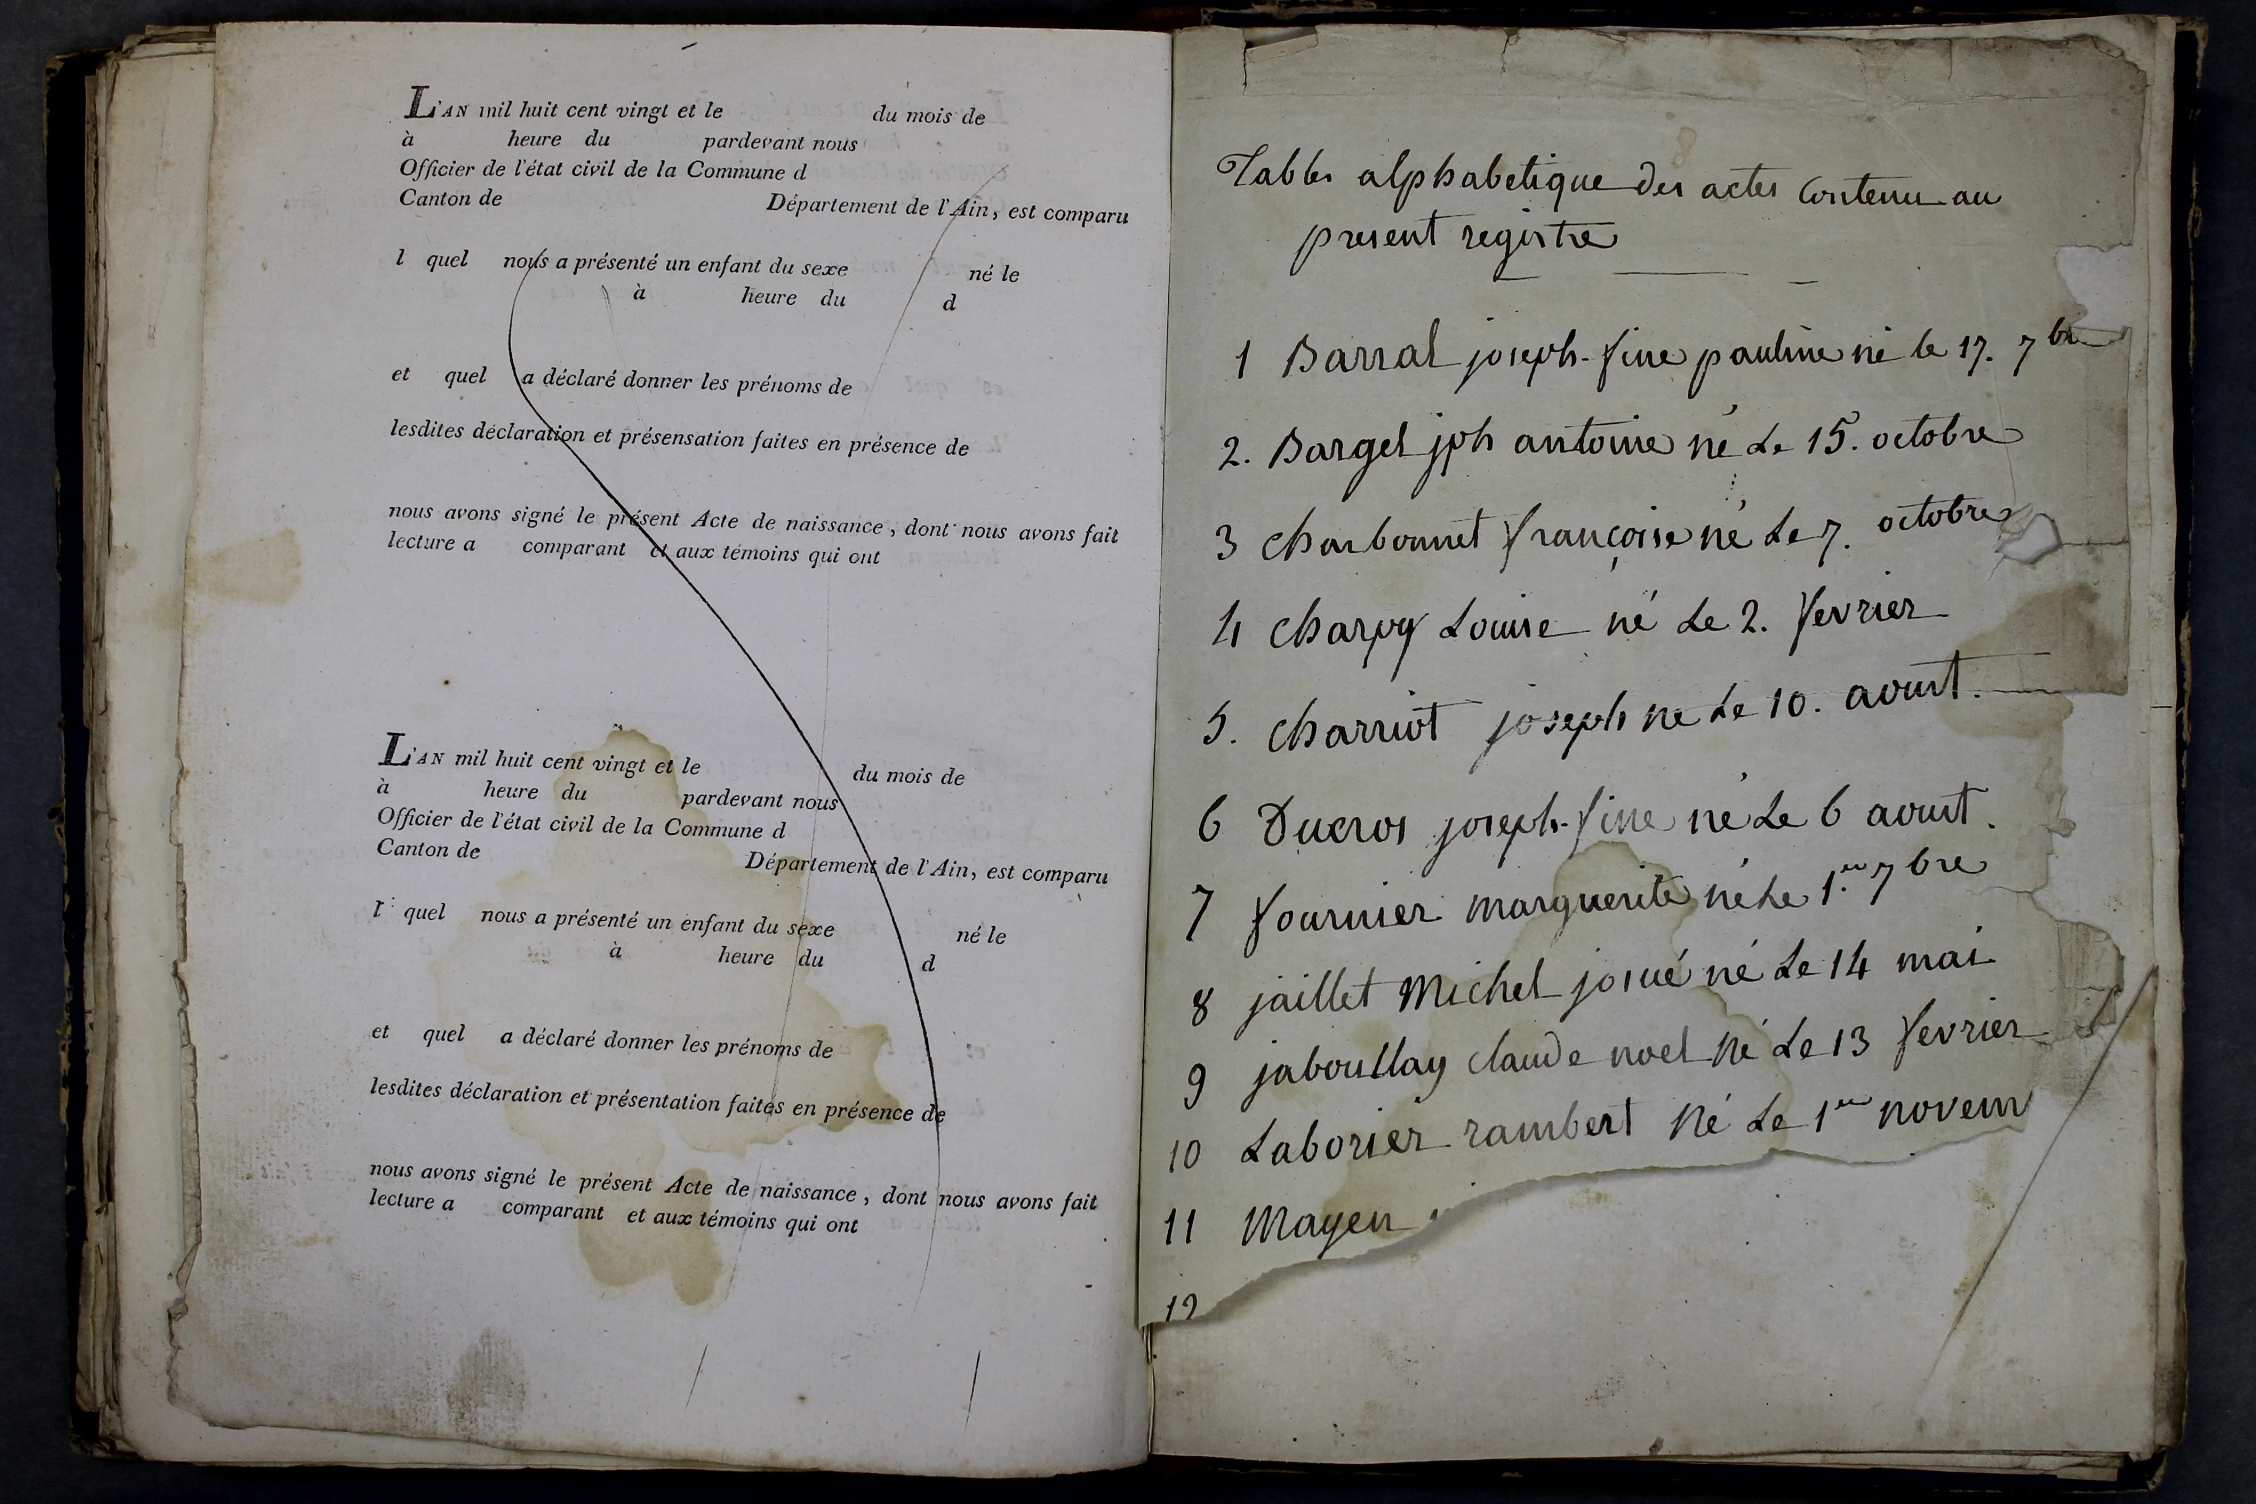 L'AN mil huit cent vingt et le du mois de
à heure du pardevant nous
Officier de l'état civil de la Commune d
Canton de Département de l'Ain, est comparu
l quel nous a présenté un enfant du sexe né le
à heure du d
et quel a déclaré donner les prénoms de
lesdites déclaration et présensation faites en présence de
nous avons signé le présent Acte de naissance, dont nous avons fait
lecture a comparant et aux témoins qui ont
L'AN mil huit cent vingt et le du mois de
à heure du pardevant nous
Officier de l'état civil de la Commune d
Canton de Département de l'Ain, est comparu
l quel nous a présenté un enfant du sexe né le
à heure du d
et quel a déclaré donner les prénoms de
lesdites déclaration et présentation faites en présence de
nous avons signé le présent Acte de naissance, dont nous avons fait
lecture a comparant et aux témoins qui ont
Tables alphabetique des actes Contenu au
present registre
1 Barral joseph-fine pauline né le 17. 7bre
2. Bargel jph antoine né Le 15. octobre
3 charbonnet françoise né Le 7. octobre
4 charpy Louise né Le 2. fevrier
5. charriot joseph né Le 10. aoust.
6 Ducros joseph-fine né Le 6 aoust.
7 fournier marguerite né Le 1.er 7bre
8 jaillet Michel josué né Le 14 mai
9 jaboullay claude noel né Le 13 fevrier
10 Laborier rambert né Le 1er novem
11 Mayen
12